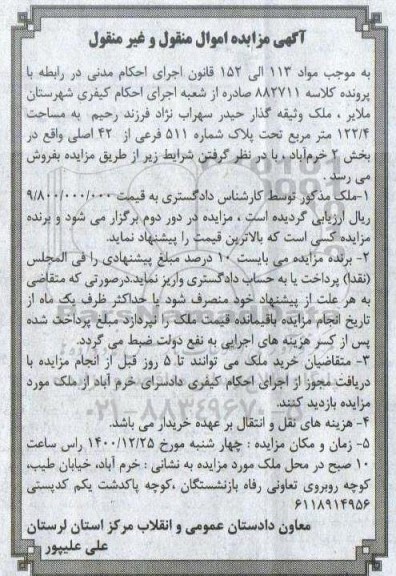 آگهی مزایده اموال منقول و غیر منقول
به موجب مواد ۱۱۳ الی ۱۵۲ قانون اجرای احکام مدنی در رابطه با
پرونده کلاسه ۸۸۲۷۱۱ صادره از شعبه اجرای احکام کیفری شهرستان
ملایر ، ملک وثیقه گذار حیدر سهراب نژاد فرزند رحیم به مساحت
۱۲۲/۴ متر مربع تحت پلاک شماره ۵۱۱ فرعی از ۴۲ اصلی واقع در
بخش ۲ خرم‌آباد ، با در نظر گرفتن شرایط زیر از طریق مزایده بفروش
می رسد .
۱-ملک مذکور توسط کارشناس دادگستری به قیمت ۹/۸۰۰/۰۰۰/۰۰۰
ریال ارزیابی گردیده است ، مزایده در دور دوم برگزار می شود و برنده
مزایده کسی است که بالاترین قیمت را پیشنهاد نماید.
۲- برنده مزایده می بایست ۱۰ درصد مبلغ پیشنهادی را فی المجلس
(نقدا) پرداخت یا به حساب دادگستری واریز نماید.درصورتی که متقاضی
به هر علت از پیشنهاد خود منصرف شود یا حداکثر ظرف یک ماه از
تاریخ انجام مزایده باقیمانده قیمت ملک را نپردازد مبلغ پرداخت شده
پس از کسر هزینه های اجرایی به نفع دولت ضبط می گردد.
۳- متقاضیان خرید ملک می توانند تا ۵ روز قبل از انجام مزایده با
دریافت مجوز از اجرای احکام کیفری دادسرای خرم آباد از ملک مورد
مزایده بازدید کنند.
۰۲۱-۸۸۳۴۹۶۷۰-۵
۴- هزینه های نقل و انتقال بر عهده خریدار می باشد.
۵- زمان و مکان مزایده : چهار شنبه مورخ ۱۴۰۰/۱۲/۲۵ راس ساعت
۱۰ صبح در محل ملک مورد مزایده به نشانی : خرم آباد، خیابان طیب،
کوچه روبروی تعاونی رفاه بازنشستگان ،کوچه پاکدشت یکم کدپستی
۶۱۱۸۹۱۴۹۵۶
معاون دادستان عمومی و انقلاب مرکز استان لرستان
علی علیپور